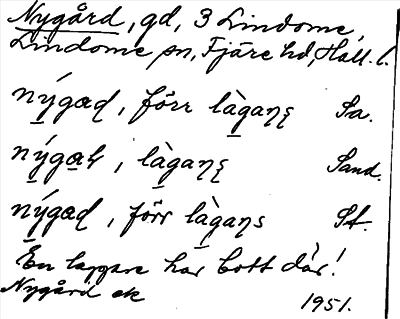 Nygård, gd, 3 Lindome,
Lindome sn, Fjäre hd, Hall. l.
nýgaɖ, förr làgaƞʂ Sa.
nýgaɽ, làgaƞʂ Sand.
nýgaɖ, förr làgaƞs St.
En laggare har bott där!
Nygård ek 1951.